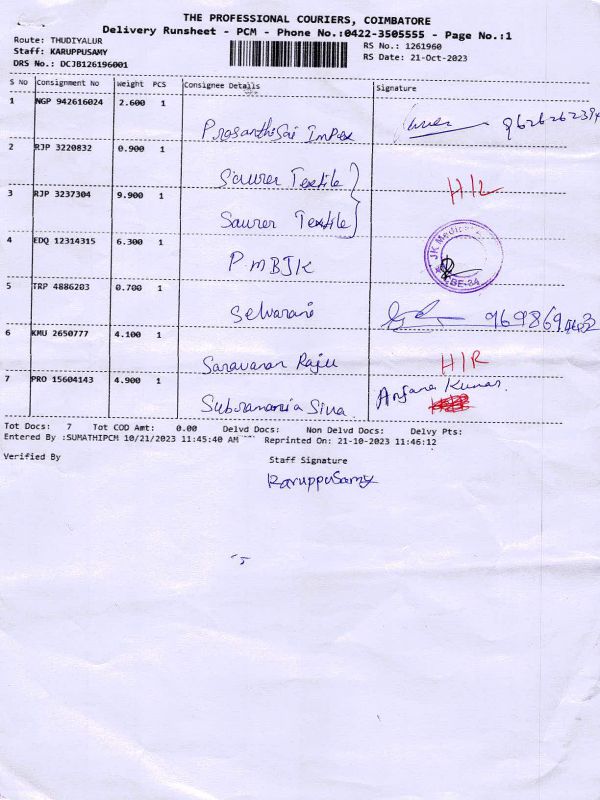 THE PROFESSIONAL COURIERS, COIMBATORE
Delivery Runsheet - PCM - Phone No.:0422-3505555 - Page No.:1
Route: THUDIYALUR
Staff: KARUPPUSAMY
DRS No.: DCJB126196001
RS No.: 1261960
RS Date: 21-Oct-2023
S No Consignment No Weight PCS Consignee Details Signature
1 NGP 942616024 2.600 1
Prasanthi Sai Impex 9626262394
2 RJP 3220832 0.900 1
Saurer Textile H/L
3 RJP 3237304 9.900 1
Saurer Textile
4 EDQ 12314315 6.300 1
PMBJK JK Medical
5 TRP 4886203 0.700 1
Selvarani
6 KMU 2650777 4.100 1
Saravanan Raju H/R
7 PRO 15604143 4.900 1
Subramania Siva Anjana Kumar.
Tot Docs: 7 Tot COD Amt: 0.00 Delvd Docs: Non Delvd Docs: Delvy Pts:
Entered By :SUMATHIPCM 10/21/2023 11:45:40 AM Reprinted On: 21-10-2023 11:46:12
Verified By Staff Signature
KaruppuSamy